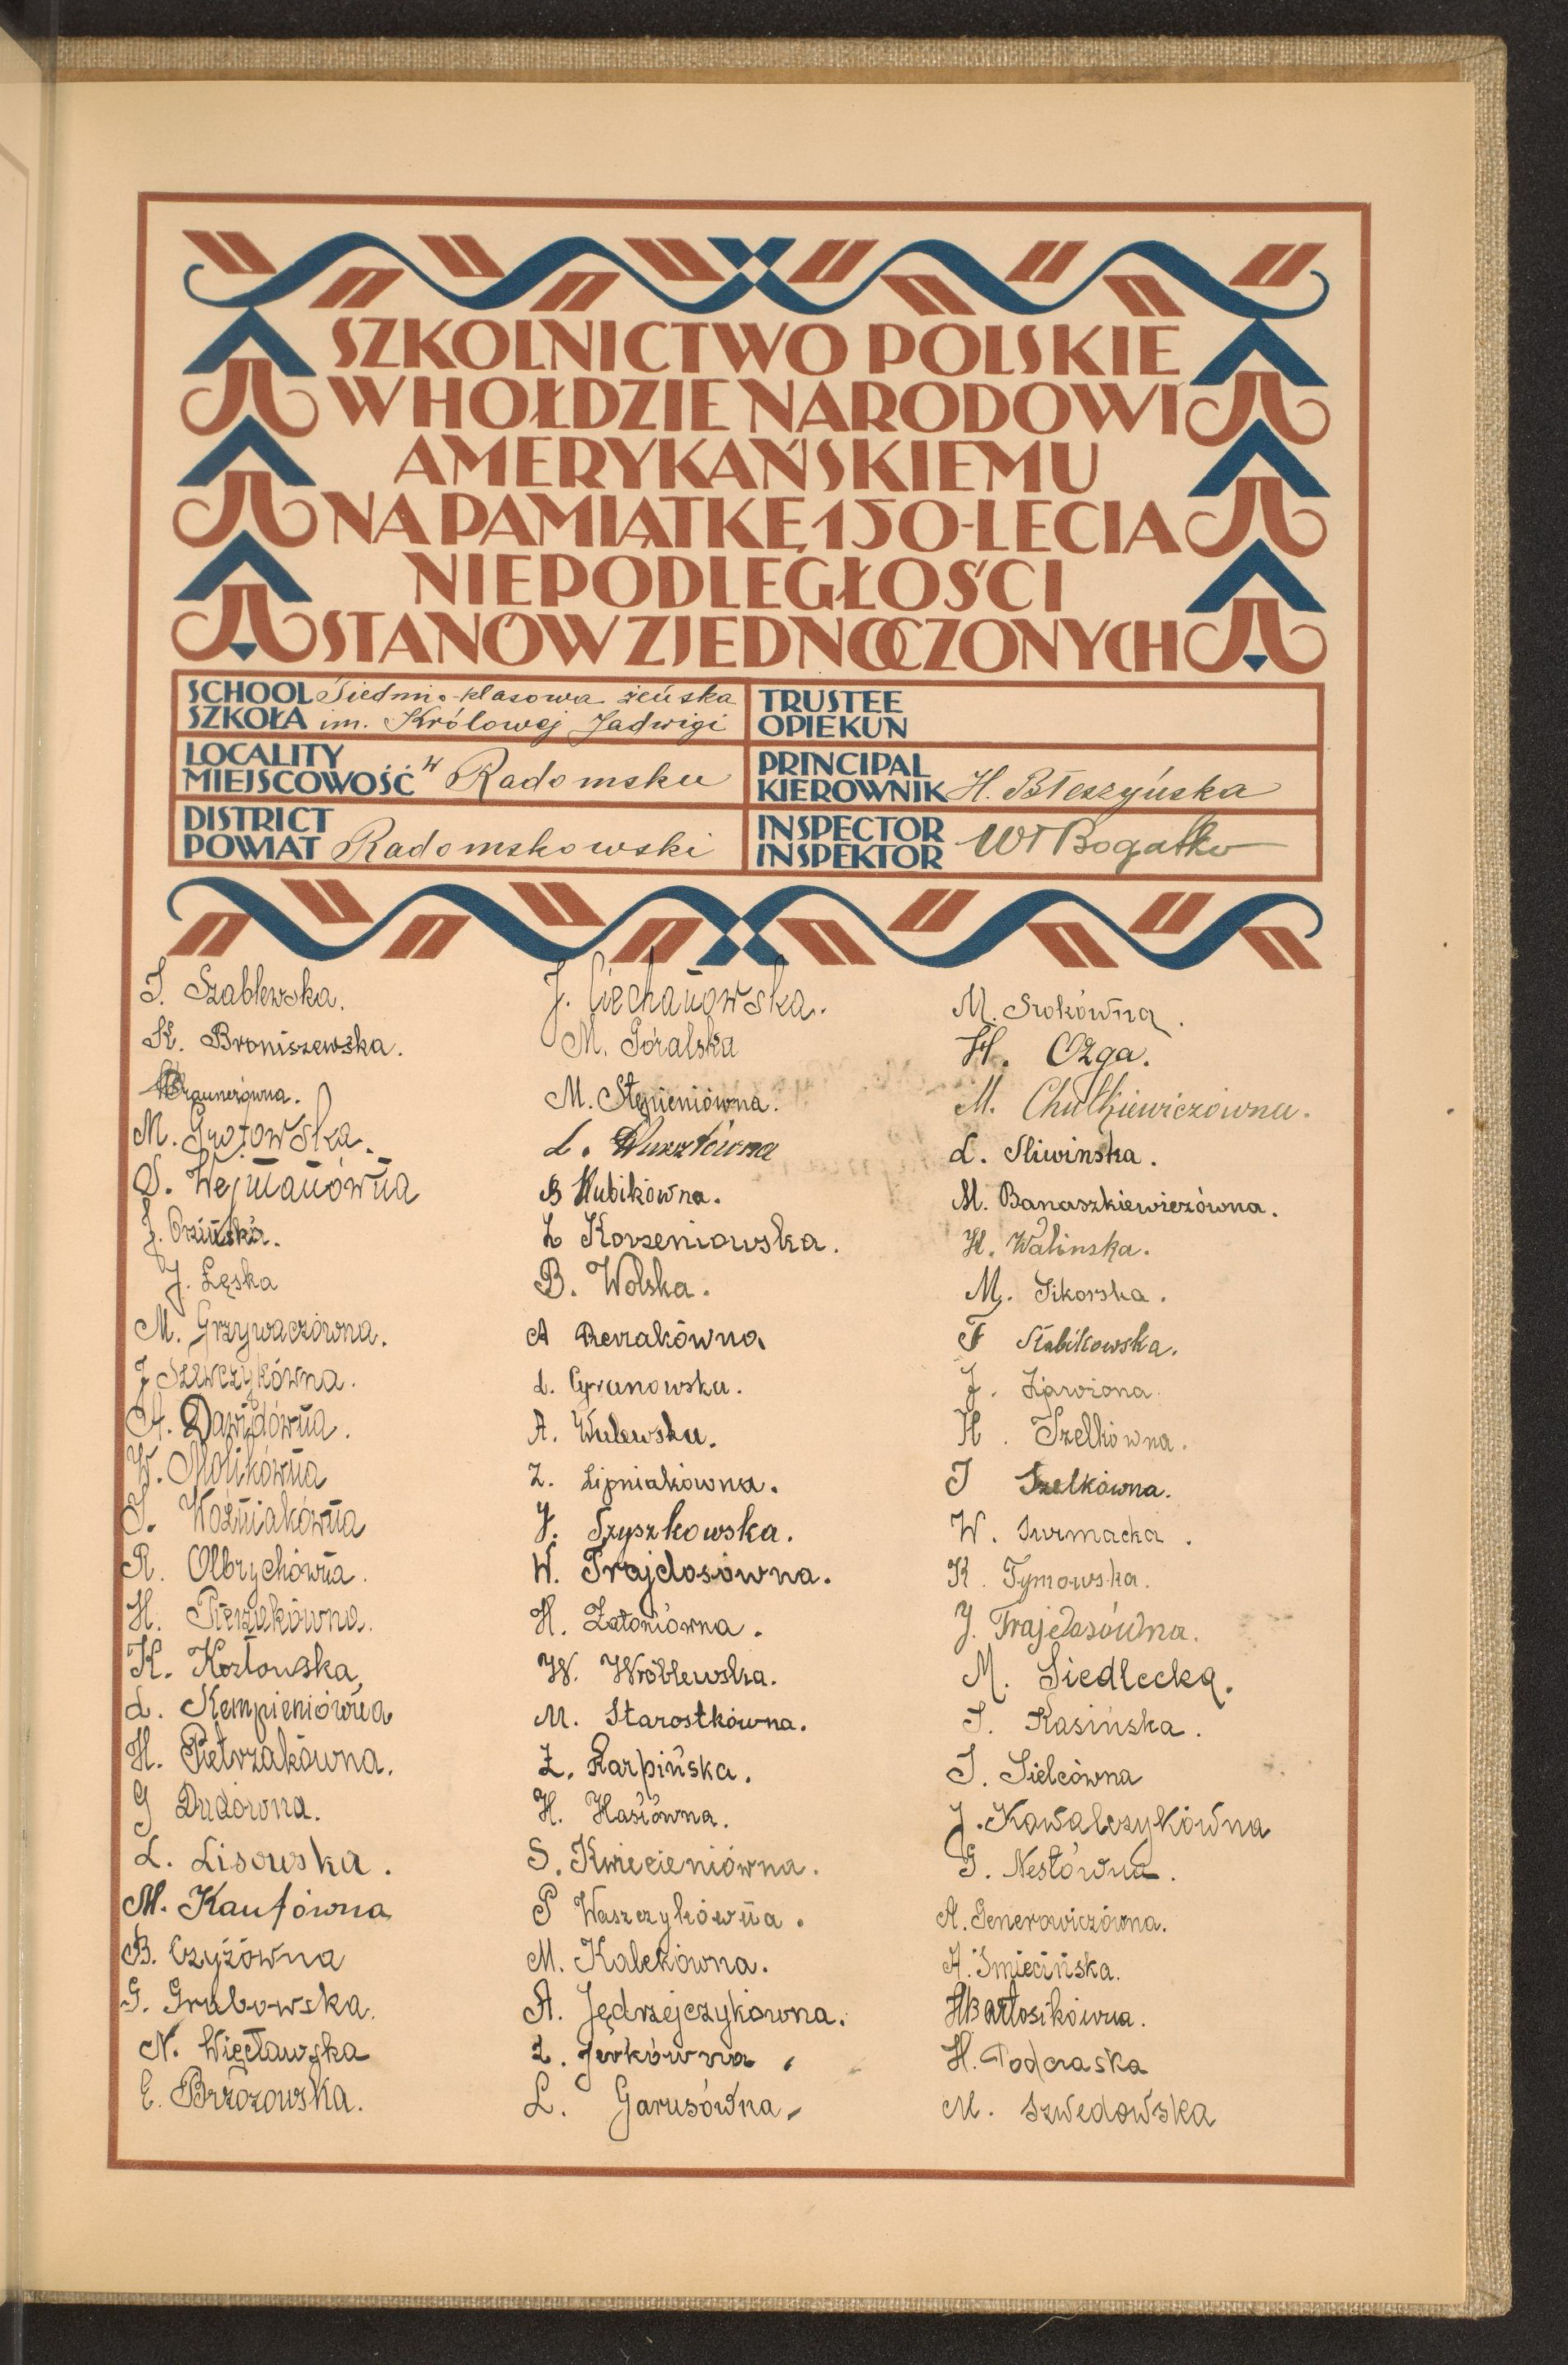 SZKOLNICTWO POLSKIE
W HOŁDZIE NARODOWI
AMERYKAŃSKIEMU
NA PAMIĄTKĘ 150-LECIA
NIEPODLEGŁOŚCI
STANÓW ZJEDNOCZONYCH
SCHOOL Siedmio-klasowa żeńska
SZKOŁA im. Królowej Jadwigi
TRUSTEE
OPIEKUN
LOCALITY
MIEJSCOWOŚĆ w Radomsku
PRINCIPAL
KIEROWNIK H. Błeszyńska
DISTRICT
POWIAT Radomskowski
INSPECTOR
INSPEKTOR Wł Bogatko
I. Szablewska.
K. Broniszewska.
Braunerówna.
M. Grotowska.
S. Wejmanówna
J.
J. Łęska
M. Grzywaczówna.
J Szewczykówna.
A. Dawidówna.
W. Molikówna
S. Woźniakówna
R. Olbrychówna.
H. Pierzakówna.
K. Kozłowska,
L. Kempieniówna
H. Pietrzakówna.
G Dudówna.
L. Lisowska.
M. Kaufówna
B. Czyżówna
G. Grabowska.
N. Więcławska
E. Brzozowska.
J. Ciechanowska.
M. Góralska
M. Stępieniówna.
L.
B Kubikówna.
Z Korzeniowska.
B. Wolska.
A
L. Cyranowska.
A. Wulewska.
Z. Lipniakówna.
J. Szyszkowska.
W. Trajdosówna.
H. Zatoniówna.
W. Wróblewska.
M. Starostkówna.
Z. Karpińska.
H. Hasiówna.
S. Kwiecieniówna.
P Waszczykówna.
M. Kalekówna.
A. Jędrzejczykówna.
Z. Jerkówna
L. Garusówna
M. Srokówna.
H. Ozga.
M. Chulkiewiczówna.
L. Sliwinska.
M. Banaszkiewiczówna.
H. Walinska.
M. Sikorska.
F Słabikowska.
J. Zjawiona
H. Szelkówna.
I Szelkówna.
W. Surmacka.
K. Tymowska.
J. Trajdosówna.
M. Siedlecka.
I. Kasińska.
I. Sielcówna
J. Kowalczykówna
G. Nestówna.
A. Generowiczówna.
A. Śmiecińska.
H Bartosikówna.
H. Podoraska
M. Szwedowska